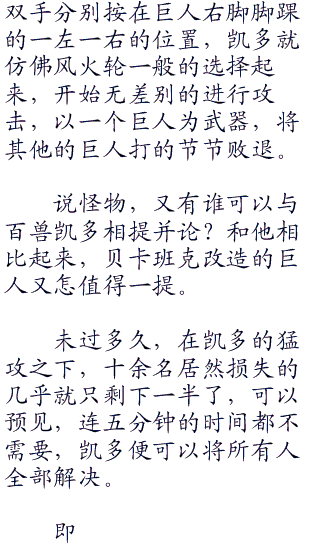 双手分别按在巨人右脚脚踝
的一左一右的位置，凯多就
仿佛风火轮一般的选择起
来，开始无差别的进行攻
击，以一个巨人为武器，将
其他的巨人打的节节败退。
说怪物，又有谁可以与
百兽凯多相提并论？和他相
比起来，贝卡班克改造的巨
人又怎值得一提。
未过多久，在凯多的猛
攻之下，十余名居然损失的
几乎就只剩下一半了，可以
预见，连五分钟的时间都不
需要，凯多便可以将所有人
全部解决。
即